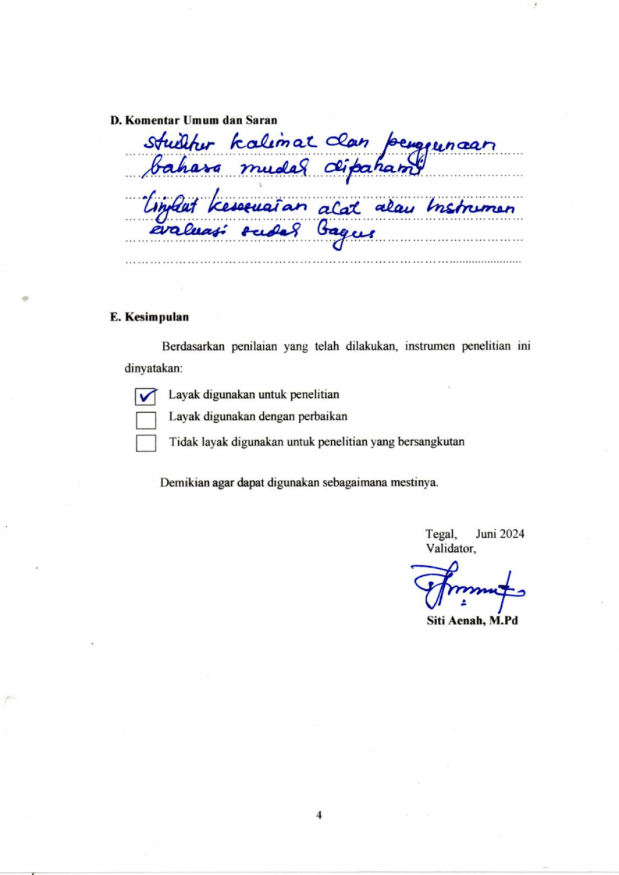 D. Komentar Umum dan Saran
struktur kalimat dan penggunaan
bahasa mudah dipahami
tingkat kesesuaian alat atau Instrumen
evaluasi sudah bagus
E. Kesimpulan
Berdasarkan penilaian yang telah dilakukan, instrumen penelitian ini
dinyatakan:
Layak digunakan untuk penelitian
Layak digunakan dengan perbaikan
Tidak layak digunakan untuk penelitian yang bersangkutan
Demikian agar dapat digunakan sebagaimana mestinya.
Tegal, Juni 2024
Validator,
Siti Aenah, M.Pd
4